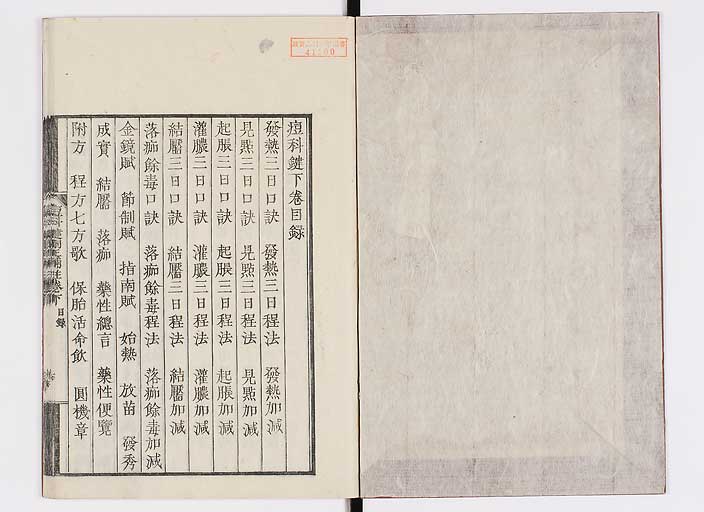 痘科鍵下卷目録
發熱三日口訣　發熱三日程法　發熱加減
見點三日口訣　見點三日程法　見點加減
起脹三日口訣　起脹三日程法　起脹加減
灌膿三日口訣　灌膿三日程法　灌膿加減
結靨三日口訣　結靨三日程法　結靨加減
落痂餘毒口訣　落痂餘毒程法　落痂餘毒加減
金鏡賦　節制賦　指南賦　始熱　放苗　發秀
成實　結靨　落痂　藥性總言　藥性便覽
附方　程方七方歌　保胎活命飲　圓機章
卷下　目録
41500